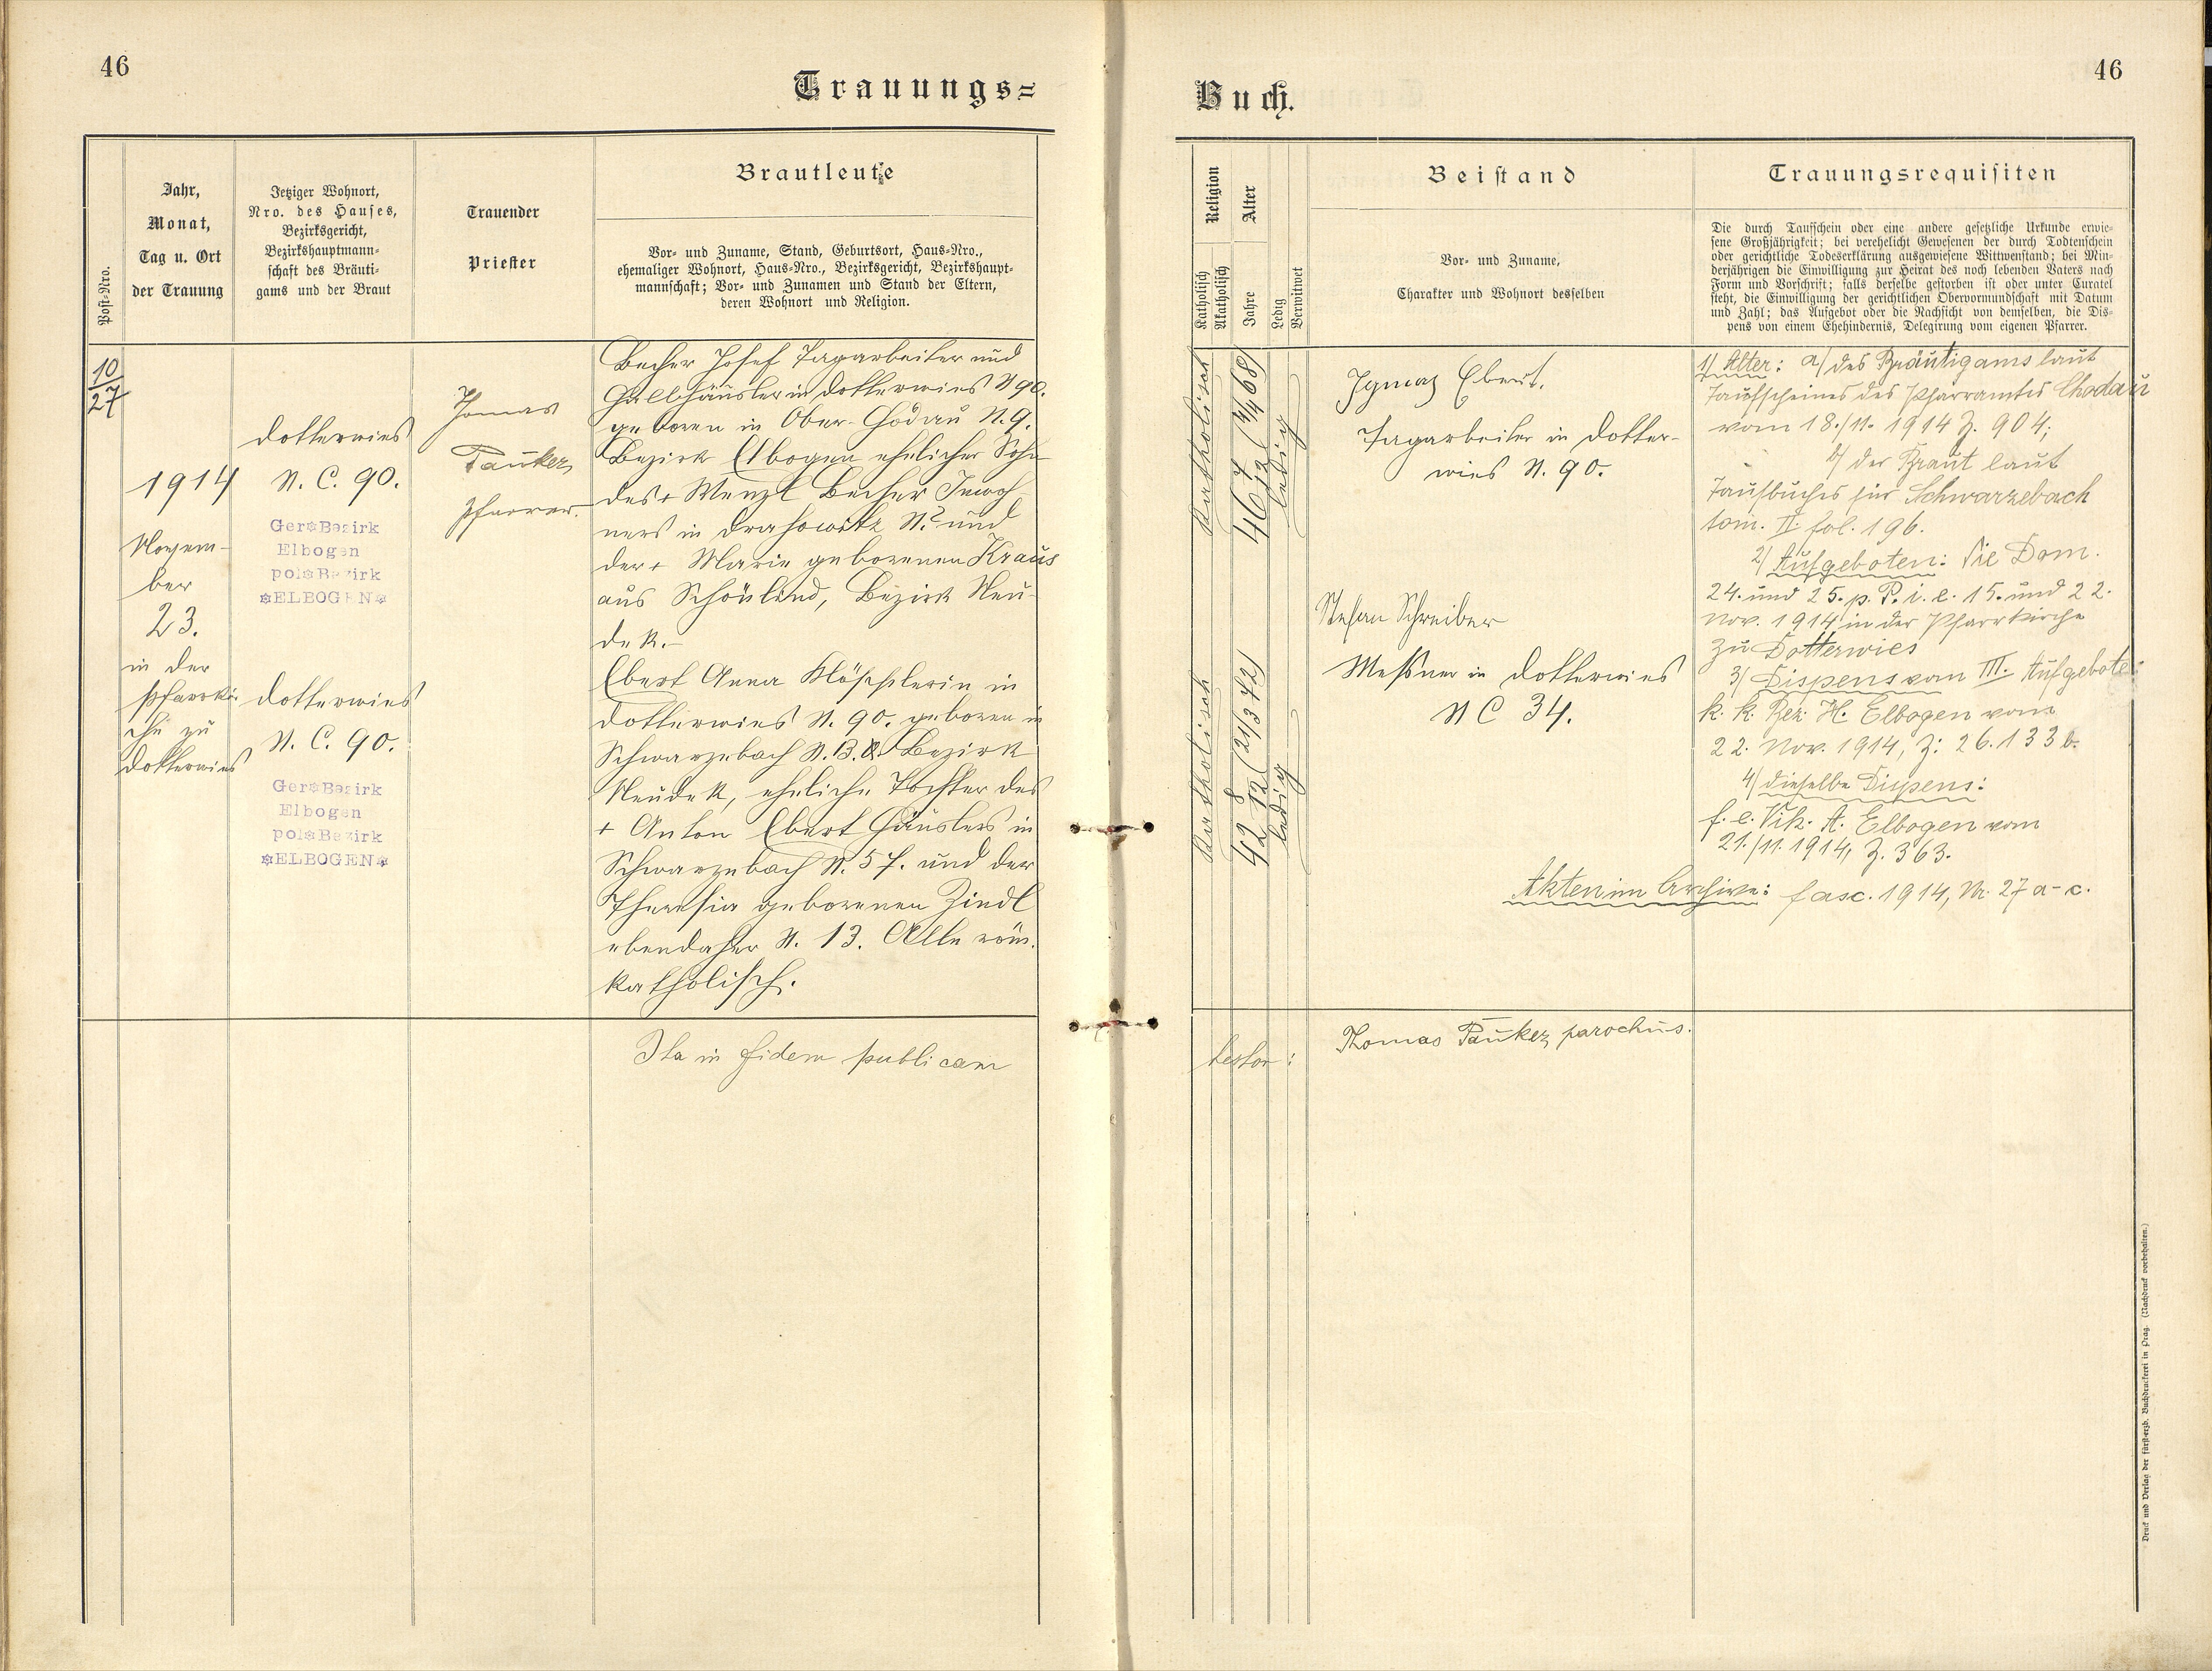 46
Trauungs=
Post-Nro.
Jahr,
Monat,
Tag u. Ort
der Trauung
Jetziger Wohnort,
Nro. des Hauses,
Bezirksgericht,
Bezirkshauptmann-
schaft des Bräuti-
gams und der Braut
Trauender
Priester
Brautleute
Vor- und Zuname, Stand, Geburtsort, Haus-Nro.,
ehemaliger Wohnort, Haus-Nro., Bezirksgericht, Bezirkshaupt-
mannschaft; Vor- und Zunamen und Stand der Eltern,
deren Wohnort und Religion.
10
27
1914
Novem-
ber
23.
in der
Pfarrkir-
che zu
Dotterwies
Dotterwies
N. C. 90.
Ger Bezirk
Elbogen
pol Bezirk
ELBOGEN
Dotterwies
N. C. 90.
Ger Bezirk
Elbogen
pol Bezirk
ELBOGEN
Thomas
Pauker,
Pfarrer.
Becher Josef Tagarbeiter und
Halbhäusler in Dotterwies N 90.
geboren in Ober-Chodau N. 9.
Bezirk Elbogen ehelicher Sohn
des + Wenzl Becher Inwoh-
ners in Drahowitz N. ? und
der + Marie geborenen Kraus
aus Schönlind, Bezirk Neu-
dek.-
Ebert Anna Klöpplerin in
Dotterwies N. 90. geboren in
Schwarzebach N. 13. Bezirk
Neudek, eheliche Tochter des
+ Anton Ebert Häuslers in
Schwarzebach N. 57. und der
Theresia geborenen Zindl
ebendaher N. 13. Alle röm.
katholisch.
Ita in fidem publicam
46
Buch.
Religion
Katholisch
Akatholisch
Alter
Jahre
Ledig
Verwitwet
Beistand
Vor- und Zuname,
Charakter und Wohnort desselben
Trauungsrequisiten
Die durch Taufschein oder eine andere gesetzliche Urkunde erwie-
sene Großjährigkeit; bei verehelicht Gewesenen der durch Todtenschein
oder gerichtliche Todeserklärung ausgewiesene Wittwenstand; bei Min-
derjährigen die Einwilligung zur Heirat des noch lebenden Vaters nach
Form und Vorschrift; falls derselbe gestorben ist oder unter Curatel
steht, die Einwilligung der gerichtlichen Obervormundschaft mit Datum
und Zahl; das Aufgebot oder die Nachsicht von demselben, die Dis-
pens von einem Ehehindernis, Delegirung vom eigenen Pfarrer.
katholisch
46 7/12 (4/4 68)
ledig
katholisch
42 8/12 (21/3 72)
ledig
Ignaz Ebert,
Tagarbeiter in Dotter-
wies N. 90.
Stefan Schreiber
Messner in Dotterwies
N C 34.
1) Alter: a) des Bräutigams laut
Taufscheines des Pfarramtes Chodau
vom 18./11. 1914 Z. 904;
b) der Braut laut
Taufbuches für Schwarzebach
tom. II. fol. 196.
2) Aufgeboten: Die Dom.
24. und 25. p. P. i. e. 15. und 22.
Nov. 1914 in der Pfarrkirche
zu Dotterwies
3) Dispens vom III. Aufgebote:
k. k. Bez. H. Elbogen vom
22. Nov. 1914, Z: 26.133 b.
4) dieselbe Dispens:
f. e. Vik. A. Elbogen vom
21./11. 1914, Z. 363.
Akten im Archive: fasc. 1914, Nr. 27 a-c.
testor:
Thomas Pauker, parochus.
Druck und Verlag der fürsterzb. Buchdruckerei in Prag. (Nachdruck vorbehalten.)